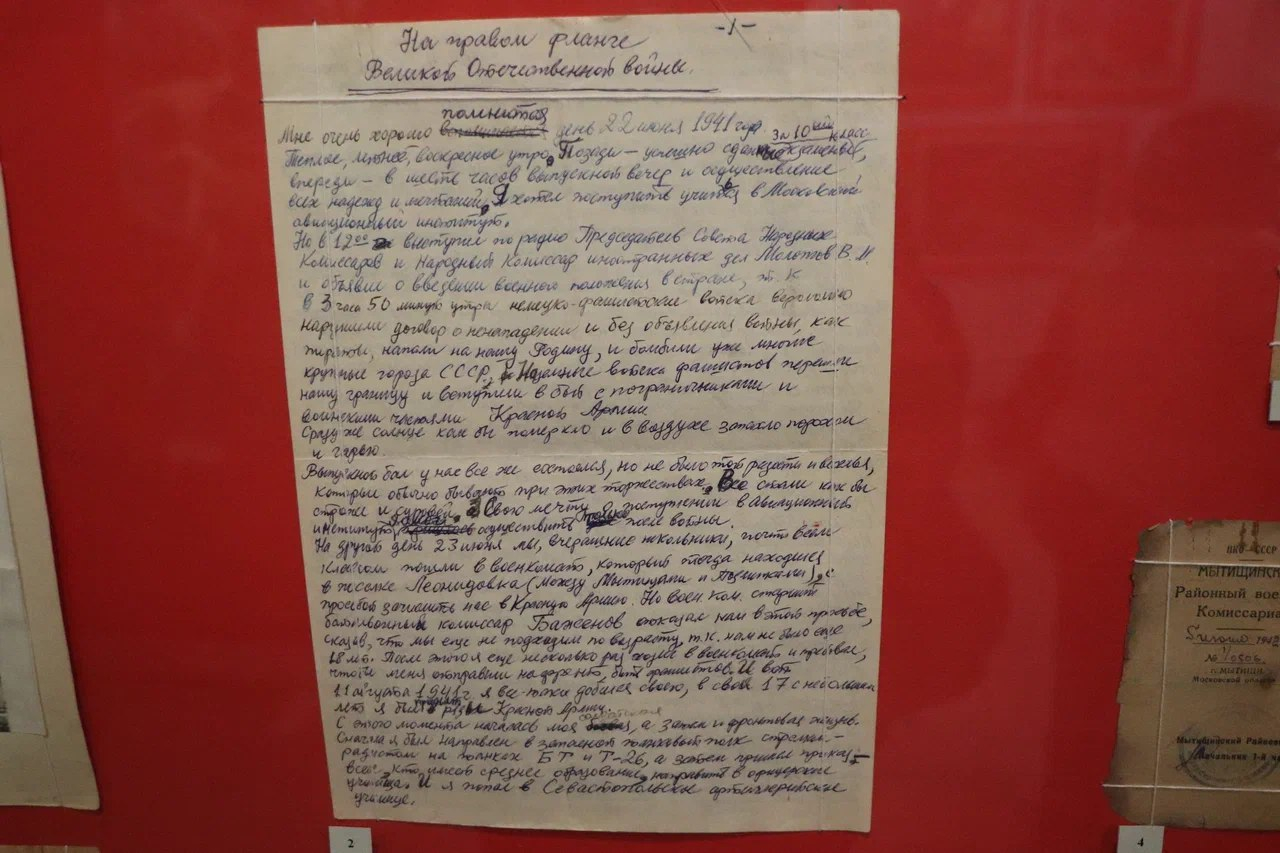 -1-
На правом фланге
Великой Отечественной войны.
Мне очень хорошо помнится день 22 июня 1941 года.
Теплое, летнее, воскресное утро. Позади – успешно сданы экзамены за 10ый класс,
впереди – в шесть часов выпускной вечер и осуществление
всех надежд и мечтаний. Я хотел поступить учиться в Московский
авиационный институт.
Но в 12 00 выступил по радио Председатель Совета Народных
Комиссаров и Народный Комиссар иностранных дел Молотов В. М
и объявил о введении военного положения в стране, т. к
в 3 часа 50 минут утра немецко-фашистские войска вероломно
нарушили договор о ненападении и без объявления войны, как
пираты, напали на нашу Родину, и бомбили уже многие
крупные города СССР. Наземные войска фашистов перешли
нашу границу и вступили в бой с пограничниками и
воинскими частями Красной Армии
Сразу же солнце как бы померкло и в воздухе запахло порохом
и гарью.
Выпускной бал у нас все же состоялся, но не было той радости и веселья,
которые обычно бывают при этих торжествах. Все стали как бы
строже и суровей. Свою мечту о поступлении в авиационный
институт я осуществить после войны.
На другой день 23 июня мы, вчерашние школьники, почти всем
классом пошли в военкомат, который тогда находился
в поселке Леонидовка (между Мытищами и Подлипками), с
просьбой зачислить нас в Красную Армию. Но воен ком. старший
батальонный комиссар Баженов отказал нам в этой просьбе,
сказав, что мы еще не подходим по возрасту, т.к. нам не было еще
18 лет. После этого я еще несколько раз ходил в военкомат и требовал,
чтобы меня отправили на фронт бить фашистов. И вот
11 августа 1941 г. я все-таки добился своего, в свои 17 с небольшим
лет я был в рядах Красной Армии.
С этого момента началась моя солдатская, а затем и фронтовая жизнь.
Сначала я был направлен в запасной танковый полк стрелком-
радистом на танках БТ и Т-26, а затем пришел приказ –
всех, кто имеет среднее образование, направить в офицерские
училища. И я попал в Севастопольское артиллерийское
училище.
2
НКО – СССР
МЫТИЩИНСК
Районный вое
Комиссариа
194
№ 1/0506
г. МЫТИЩИ
Московской област
Мытищинский Райвое
Начальник 1-й ча
4